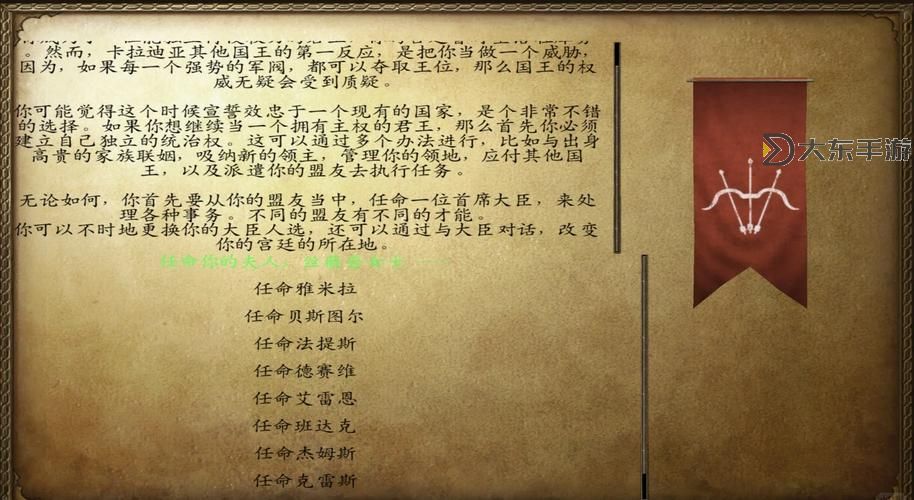 。然而，卡拉迪亚其他国王的第一反应，是把你当做一个威胁，
因为，如果每一个强势的军阀，都可以夺取王位，那么国王的权
威无疑会受到质疑。
你可能觉得这个时候宣誓效忠于一个现有的国家，是个非常不错
的选择。如果你想继续当一个拥有主权的君王，那么首先你必须
建立自己独立的统治权。这可以通过多个办法进行，比如与出身
高贵的家族联姻，吸纳新的领主，管理你的领地，应付其他国
王，以及派遣你的盟友去执行任务。
无论如何，你首先要从你的盟友当中，任命一位首席大臣，来处
理各种事务。不同的盟友有不同的才能。
你可以不时地更换你的大臣人选，还可以通过与大臣对话，改变
你的宫廷的所在地。
任命你的夫人，
任命雅米拉
任命贝斯图尔
任命法提斯
任命德赛维
任命艾雷恩
任命班达克
任命杰姆斯
任命克雷斯
大东手游